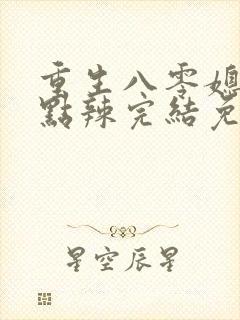 重生八零媳
點辣完結免
星空辰星